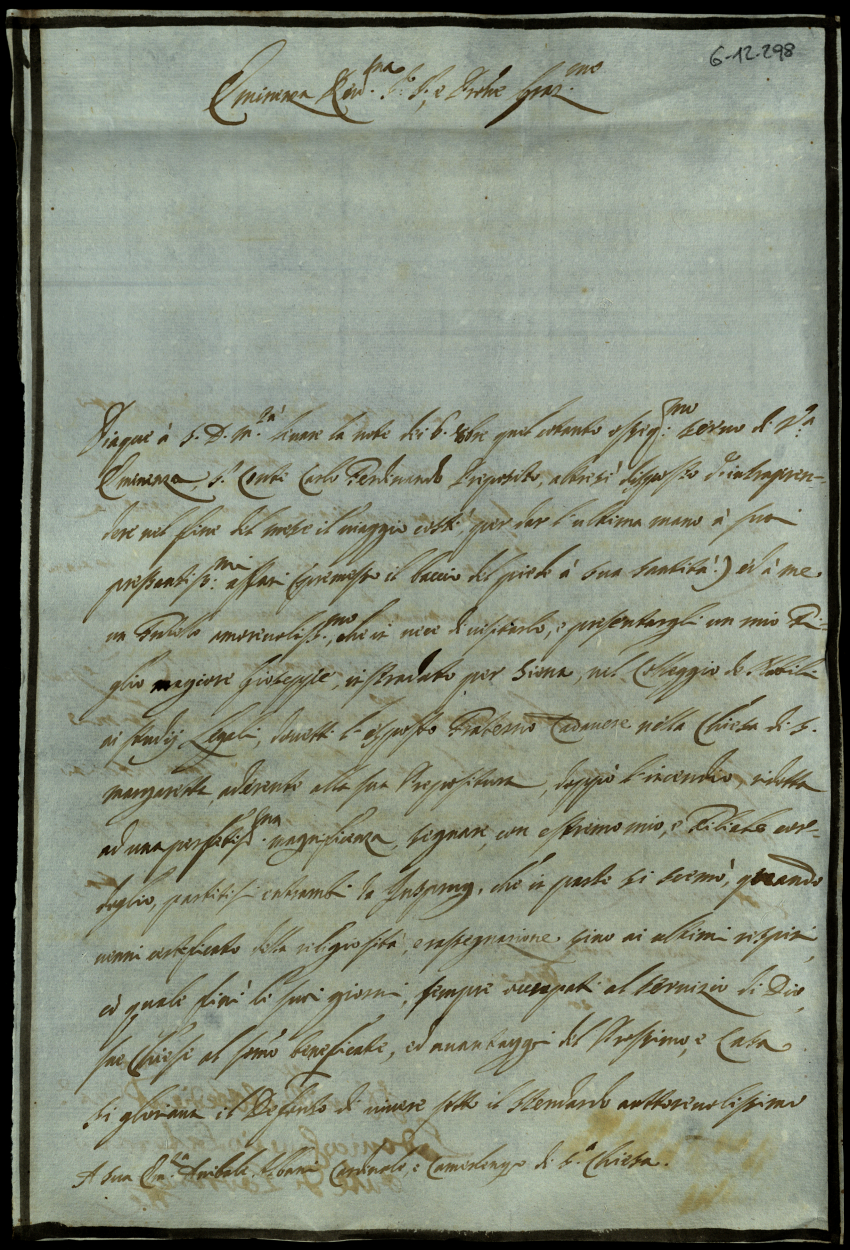 6-12-298
Eminenza Rev.ma S.r S.r, e Prone Graz.mo
Piaque à S. D. M.tà levare la note dei 6. 8bre quel cotanto osseq.mo servo di V.a
Eminenza, S.r Conte Carlo Ferdinando Preposito, altresì disposto d'intrapren-
dere nel fine del mese il viaggio costì, per dar l'ultima mano à suoi
pressantiss.mi affari (premesso il baccio del piede à Sua Santità:) ed à me
un Fratello amorevoliss.mo, che in vece di visitarlo, e presentargli un mio Fi-
glio magiore Gioseppe, instradato per Siena, nel Colleggio de Nobili
ai studij Legali, dovetti l'esposto Fraterno Cadavere nella Chiesa di S.
Margaretta, aderente alla sua Prepositura, doppo l'incendio, ridotta
ad una perfettiss.ma magnificenza, segnare, con estremo mio, e Filiale cor-
doglio, partitisi entrambi da Insprug, che in parte si scemò, quando
venni certificato della religiosità, e rassegnazione sino ai ultimi respiri,
cò quale finì li suoi giorni, sempre occupati al servizio di Dio,
sue Chiese al somo beneficate, ed avantaggi del Prossimo, e Casa
Si gloriava il Defonto di vivere sotto il Stendardo auttorevolissimo
A Sua Em.za Anibale Albani Cardinale, e Camerlengo di S.a Chiesa.